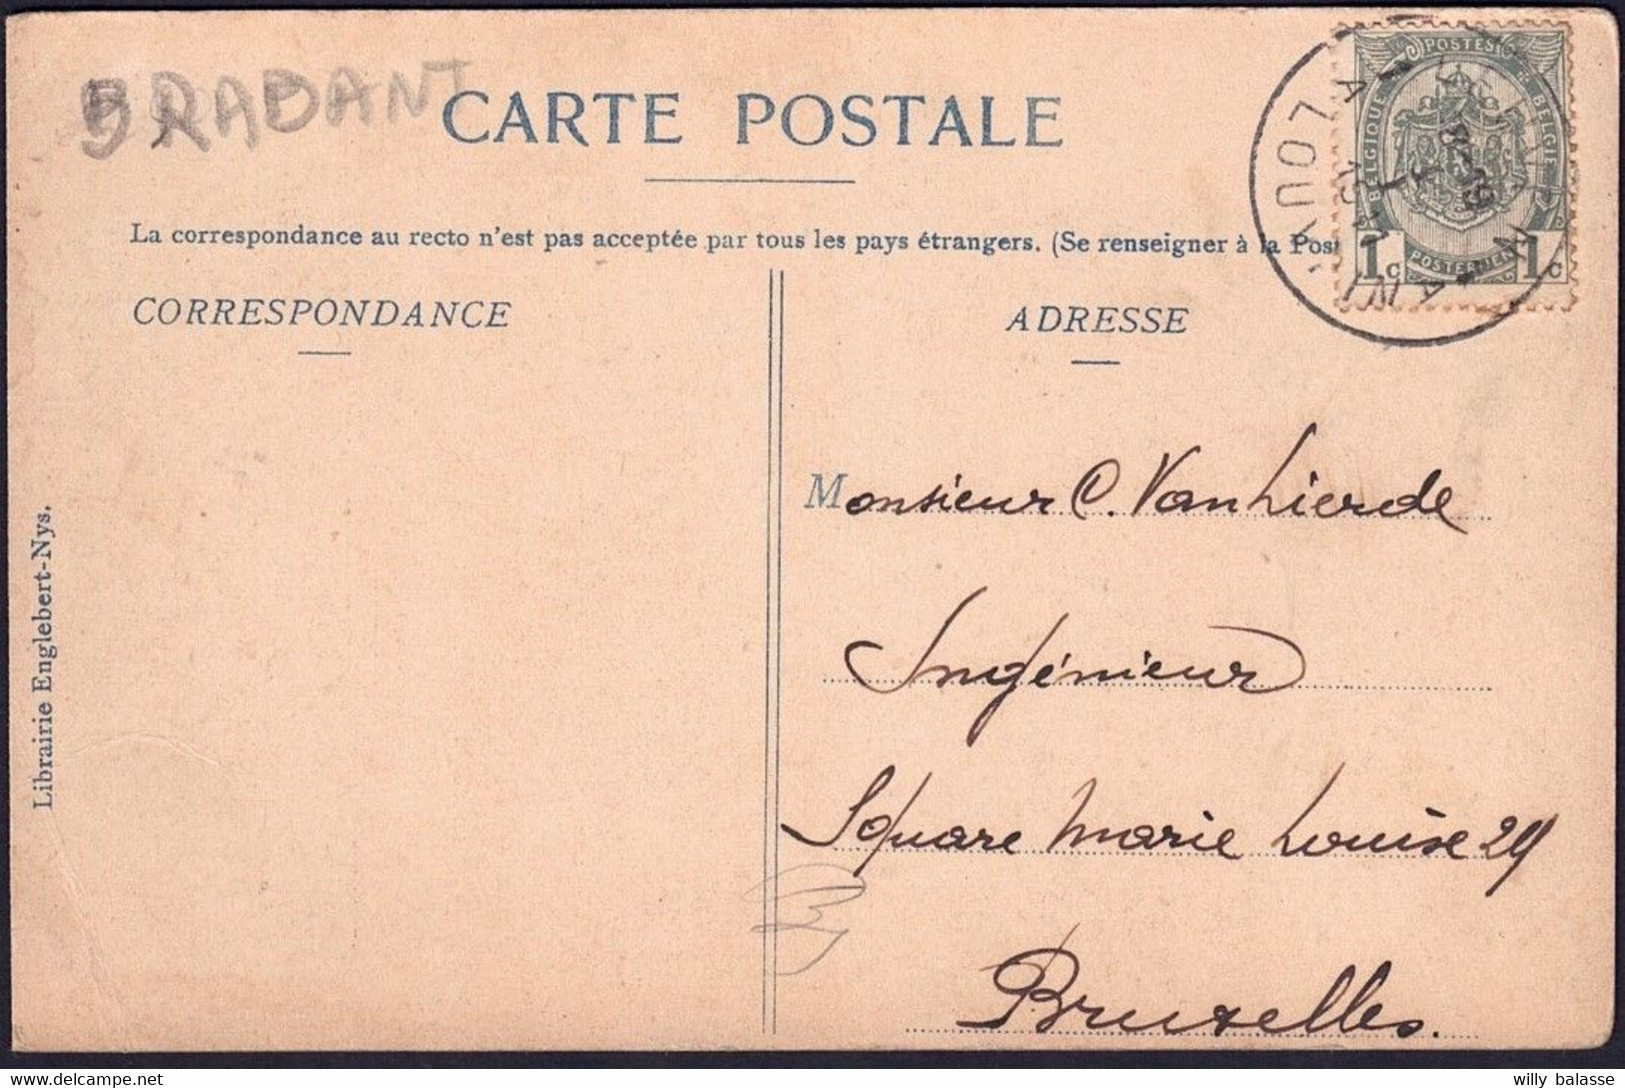 BRABANT
CARTE POSTALE
La correspondance au recto n'est pas acceptée par tous les pays étrangers. (Se renseigner à la Post
CORRESPONDANCE
ADRESSE
POSTES
BELGIQUE
BELGIE
1c POSTERIJEN 1c
LOUVAIN
Monsieur C. Vanhierde
Ingénieur
Square Marie Louise 29
Bruxelles.
Librairie Englebert-Nys.
willy balasse